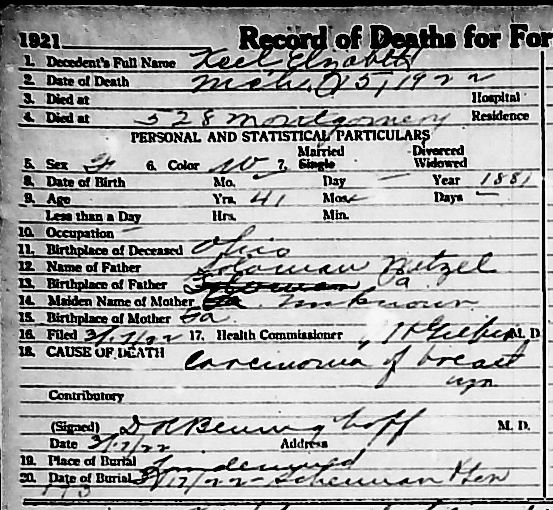 1921 Record of Deaths for For
1. Decedent's Full Name Keel Elizabeth
2. Date of Death Mch. 15, 1922
3. Died at Hospital
4. Died at 528 Montgomery Residence
PERSONAL AND STATISTICAL PARTICULARS
5. Sex F 6. Color W 7. Married Single Divorced Widowed
8. Date of Birth Mo. Day Year 1881
9. Age Yrs. 41 Mos. Days
Less than a Day Hrs. Min.
10. Occupation
11. Birthplace of Deceased Ohio
12. Name of Father Soloman Wetzel
13. Birthplace of Father Pa
14. Maiden Name of Mother Unknown
15. Birthplace of Mother Pa
16. Filed 17. Health Commissioner M. D.
18. CAUSE OF DEATH Carcinoma of breast
Contributory
(Signed) M. D.
Date 3/17/22 Address
19. Place of Burial
20. Date of Burial 3/17/22